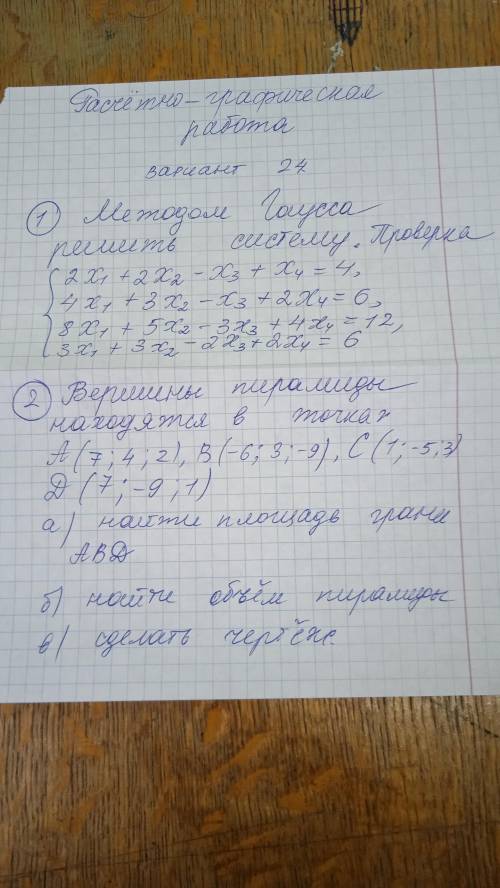 Расчётно-графическая
работа
вариант 24
1 Методом Гаусса
решить систему. Проверка
2x₁ + 2x₂ - x₃ + x₄ = 4,
4x₁ + 3x₂ - x₃ + 2x₄ = 6,
8x₁ + 5x₂ - 3x₃ + 4x₄ = 12,
3x₁ + 3x₂ - 2x₃ + 2x₄ = 6
2 Вершины пирамиды
находятся в точках
A (7; 4; 2), B (-6; 3; -9), C (1; -5; 3)
D (7; -9; 1)
а) найти площадь грани
ABD
б) найти объём пирамиды
в) сделать чертёж.